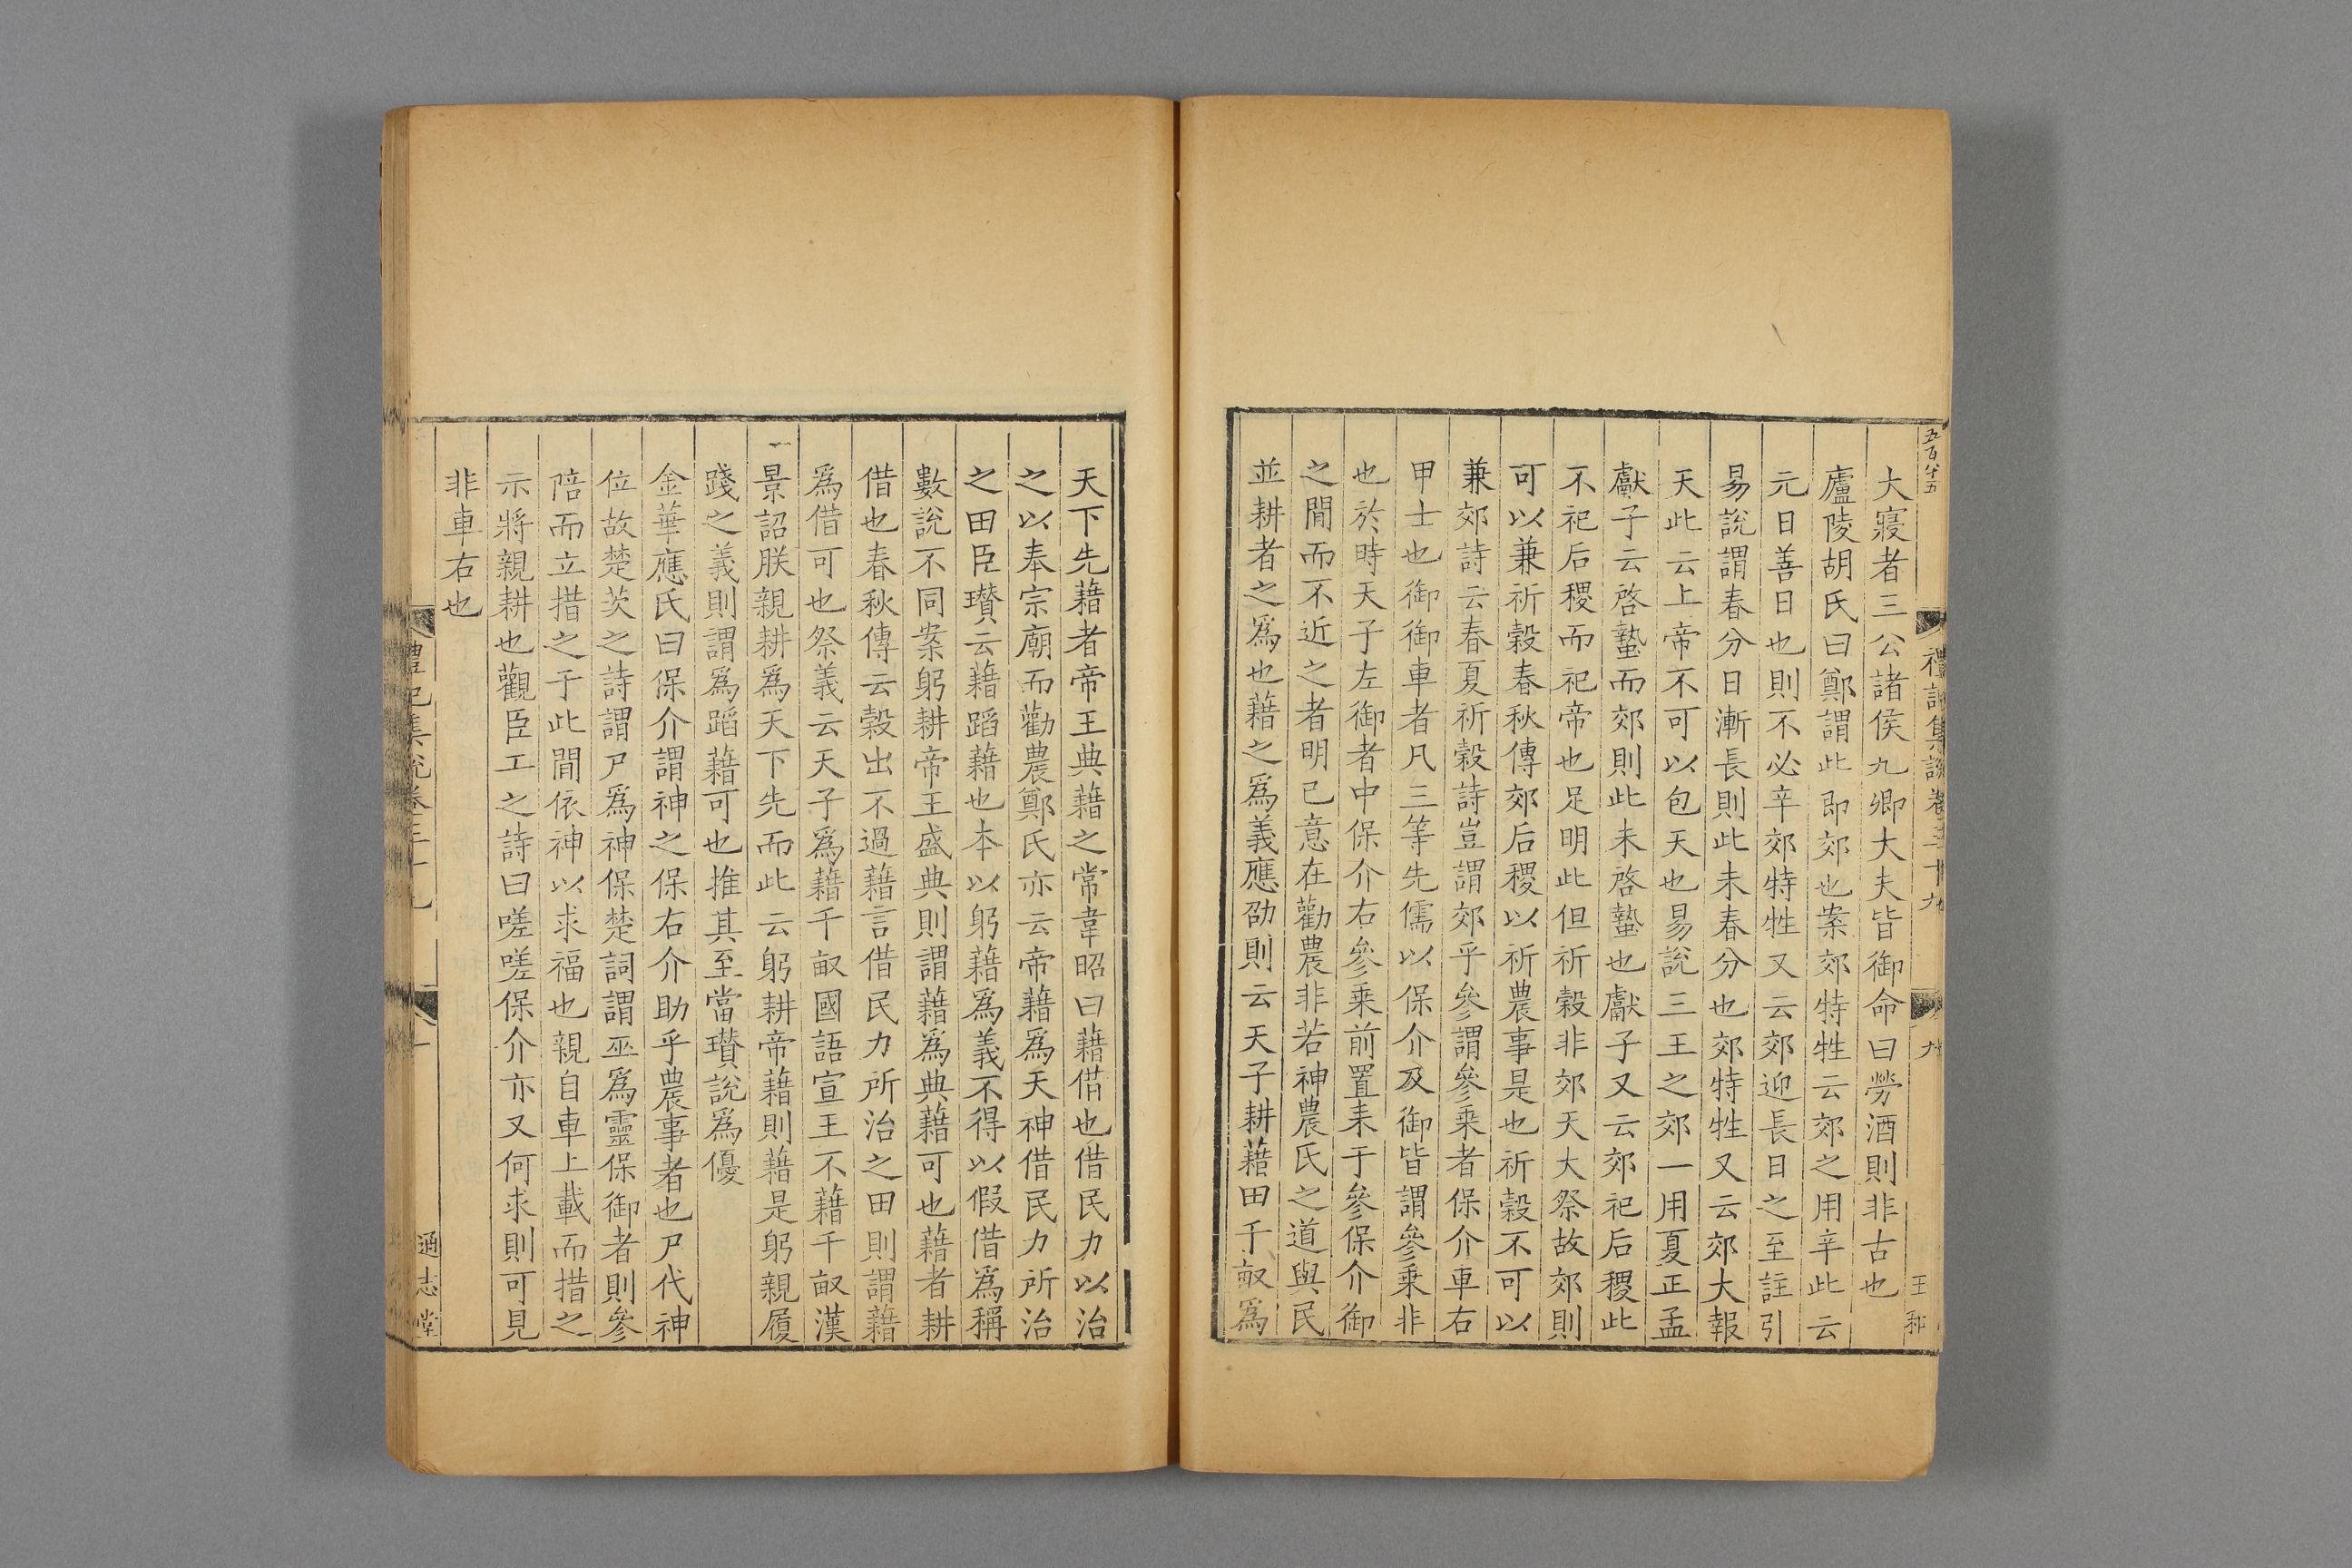 五百八十五
禮記集說卷三十九
九
王和
大寢者三公諸侯九卿大夫皆御命曰勞酒則非古也
廬陵胡氏曰鄭謂此即郊也案郊特牲云郊之用辛此云
元日善日也則不必辛郊特牲又云郊迎長日之至註引
易說謂春分日漸長則此未春分也郊特牲又云郊大報
天此云上帝不可以包天也易說三王之郊一用夏正孟
獻子云啓蟄而郊則此未啓蟄也獻子又云郊祀后稷此
不祀后稷而祀帝也足明此但祈穀非郊天大祭故郊則
可以兼祈穀春秋傳郊后稷以祈農事是也祈穀不可以
兼郊詩云春夏祈穀詩豈謂郊乎參謂參乘者保介車右
甲士也御御車者凡三等先儒以保介及御皆謂參乘非
也於時天子左御者中保介右參乘前置耒于參保介御
之閒而不近之者明己意在勸農非若神農氏之道與民
並耕者之爲也藉之爲義應劭則云天子耕藉田千畝爲
天下先藉者帝王典藉之常韋昭曰藉借也借民力以治
之以奉宗廟而勸農鄭氏亦云帝藉爲天神借民力所治
之田臣瓚云藉蹈藉也本以躬藉爲義不得以假借爲稱
數說不同案躬耕帝王盛典則謂藉爲典藉可也藉者耕
借也春秋傳云穀出不過藉言借民力所治之田則謂藉
爲借可也祭義云天子爲藉千畝國語宣王不藉千畝漢
景詔朕親耕爲天下先而此云躬耕帝藉則藉是躬親履
踐之義則謂爲蹈藉可也推其至當瓚說爲優
金華應氏曰保介謂神之保右介助乎農事者也尸代神
位故楚茨之詩謂尸爲神保楚詞謂巫爲靈保御者則參
陪而立措之于此閒依神以求福也親自車上載而措之
示將親耕也觀臣工之詩曰嗟嗟保介亦又何求則可見
非車右也
禮記集說卷三十九
通志堂